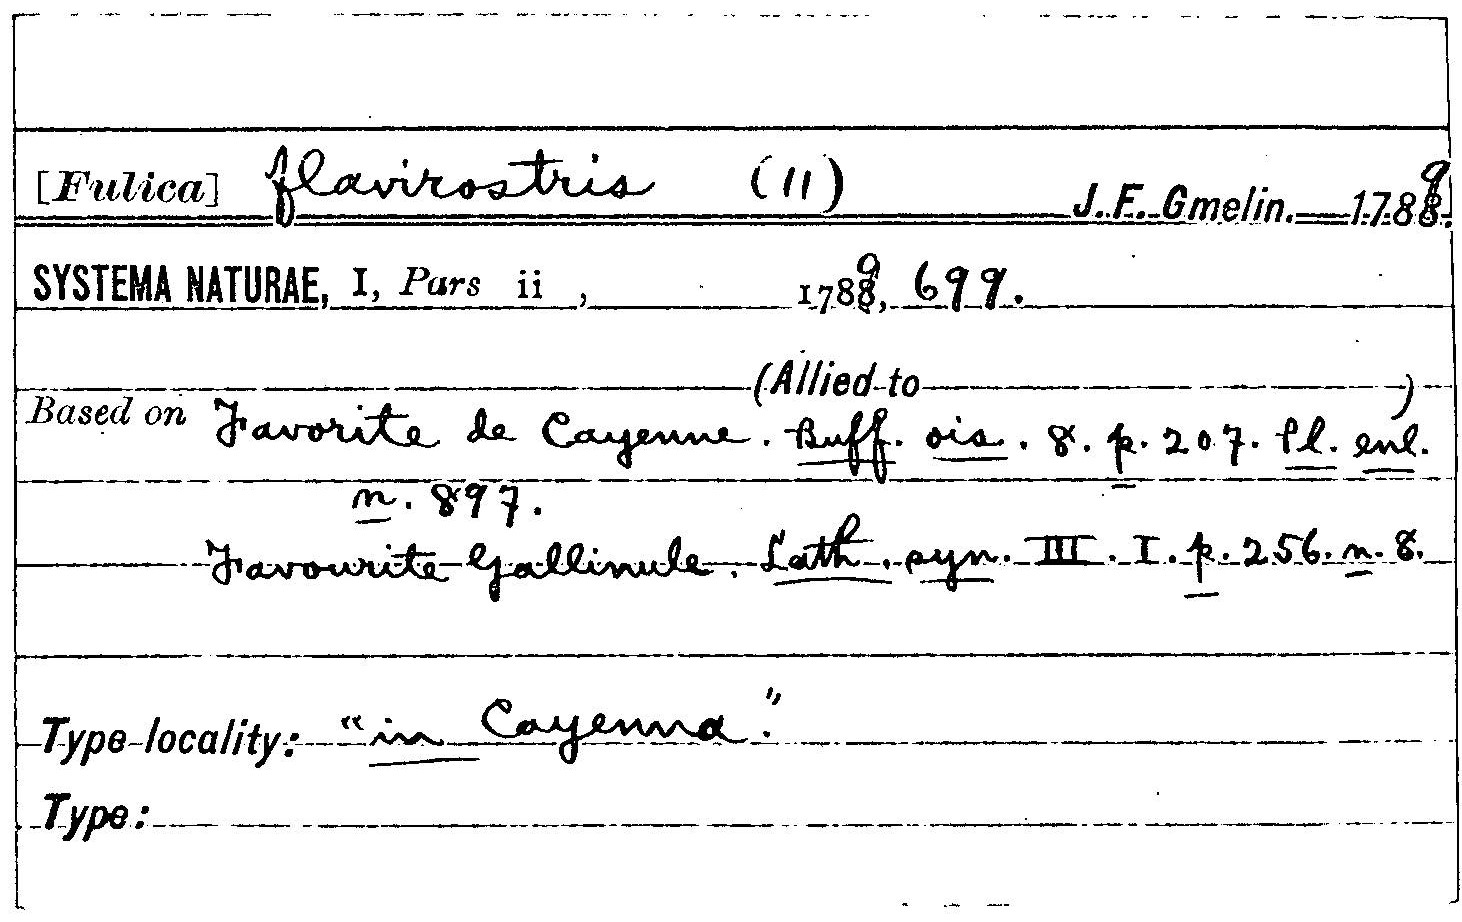 [Fulica] flavirostris (11) J. F. Gmelin. 1789.
SYSTEMA NATURAE, I, Pars ii , 1789, 699.
(Allied to )
Based on Favorite de Cayenne. Buff. ois. 8. p. 207. Pl. enl.
n. 897.
Favourite Gallinule. Lath. syn. III. I. p. 256. n. 8.
Type locality: "in Cayenna."
Type: